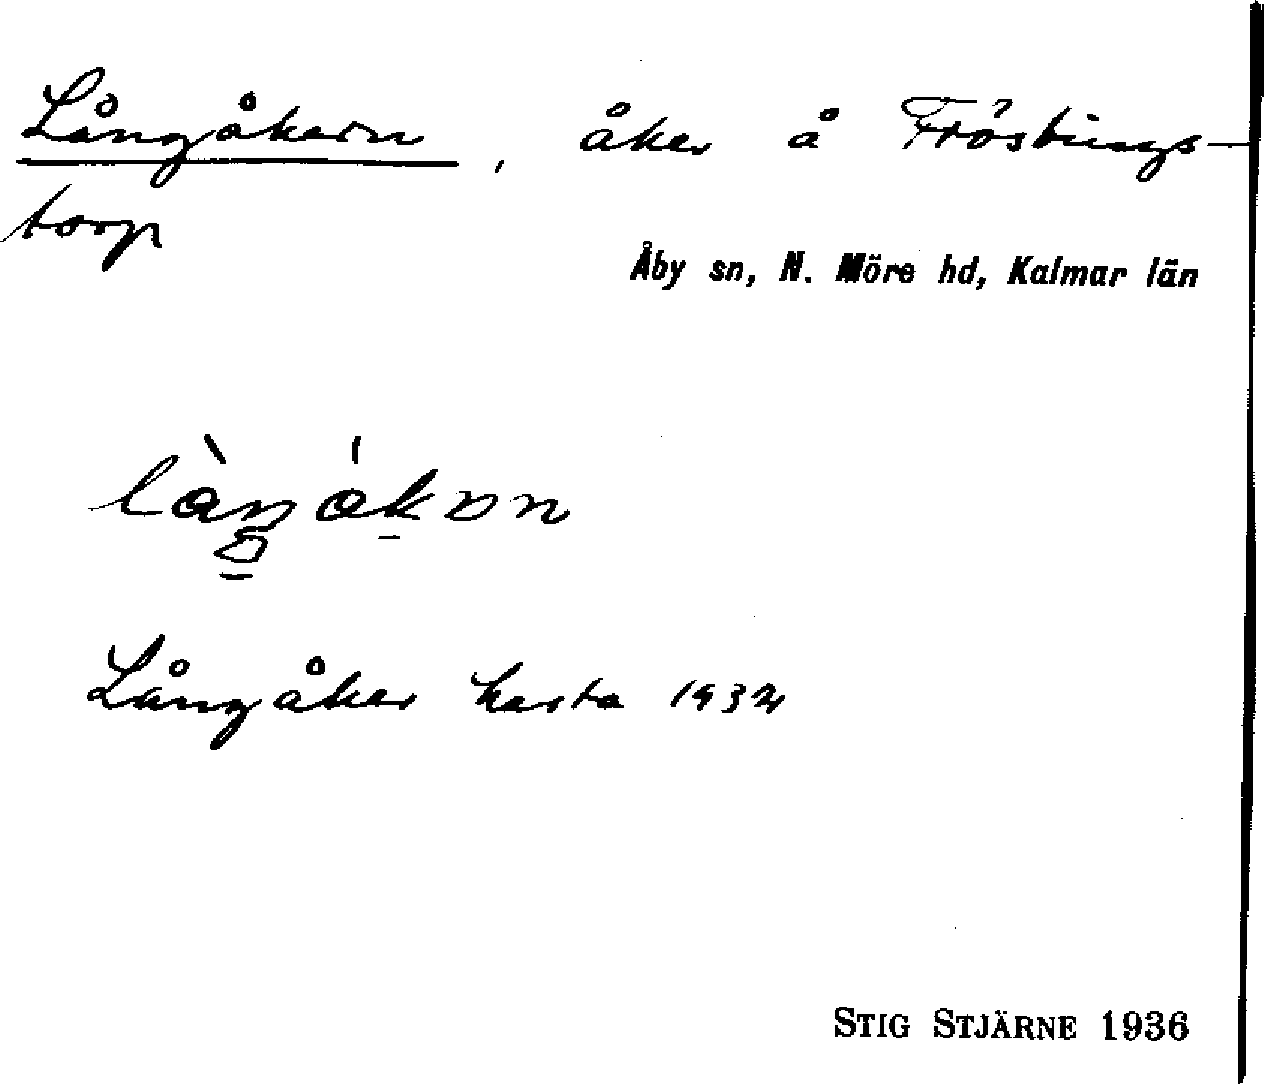 Långåkern, åker å Fröslings-
torp
Åby sn, N. Möre hd, Kalmar län
Långåker karta 1932
STIG STJÄRNE 1936